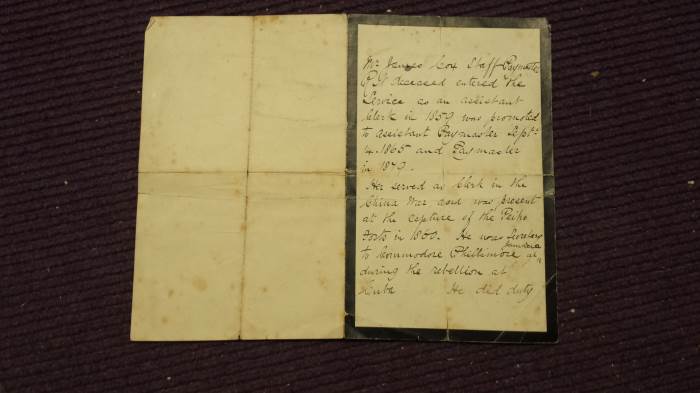 Mr James Cox Staff Paymaster
R.N deceased entered the
Service as an assistant
Clerk in 1859 was promoted
to assistant Paymaster Sept.
4. 1865 and Paymaster
in 1879.
He served as Clerk in the
China War and was present
at the capture of the Peiho
Forts in 1860. He was Secretary
to Commodore Phillimore at Jamaica
during the rebellion at
Cuba He did duty